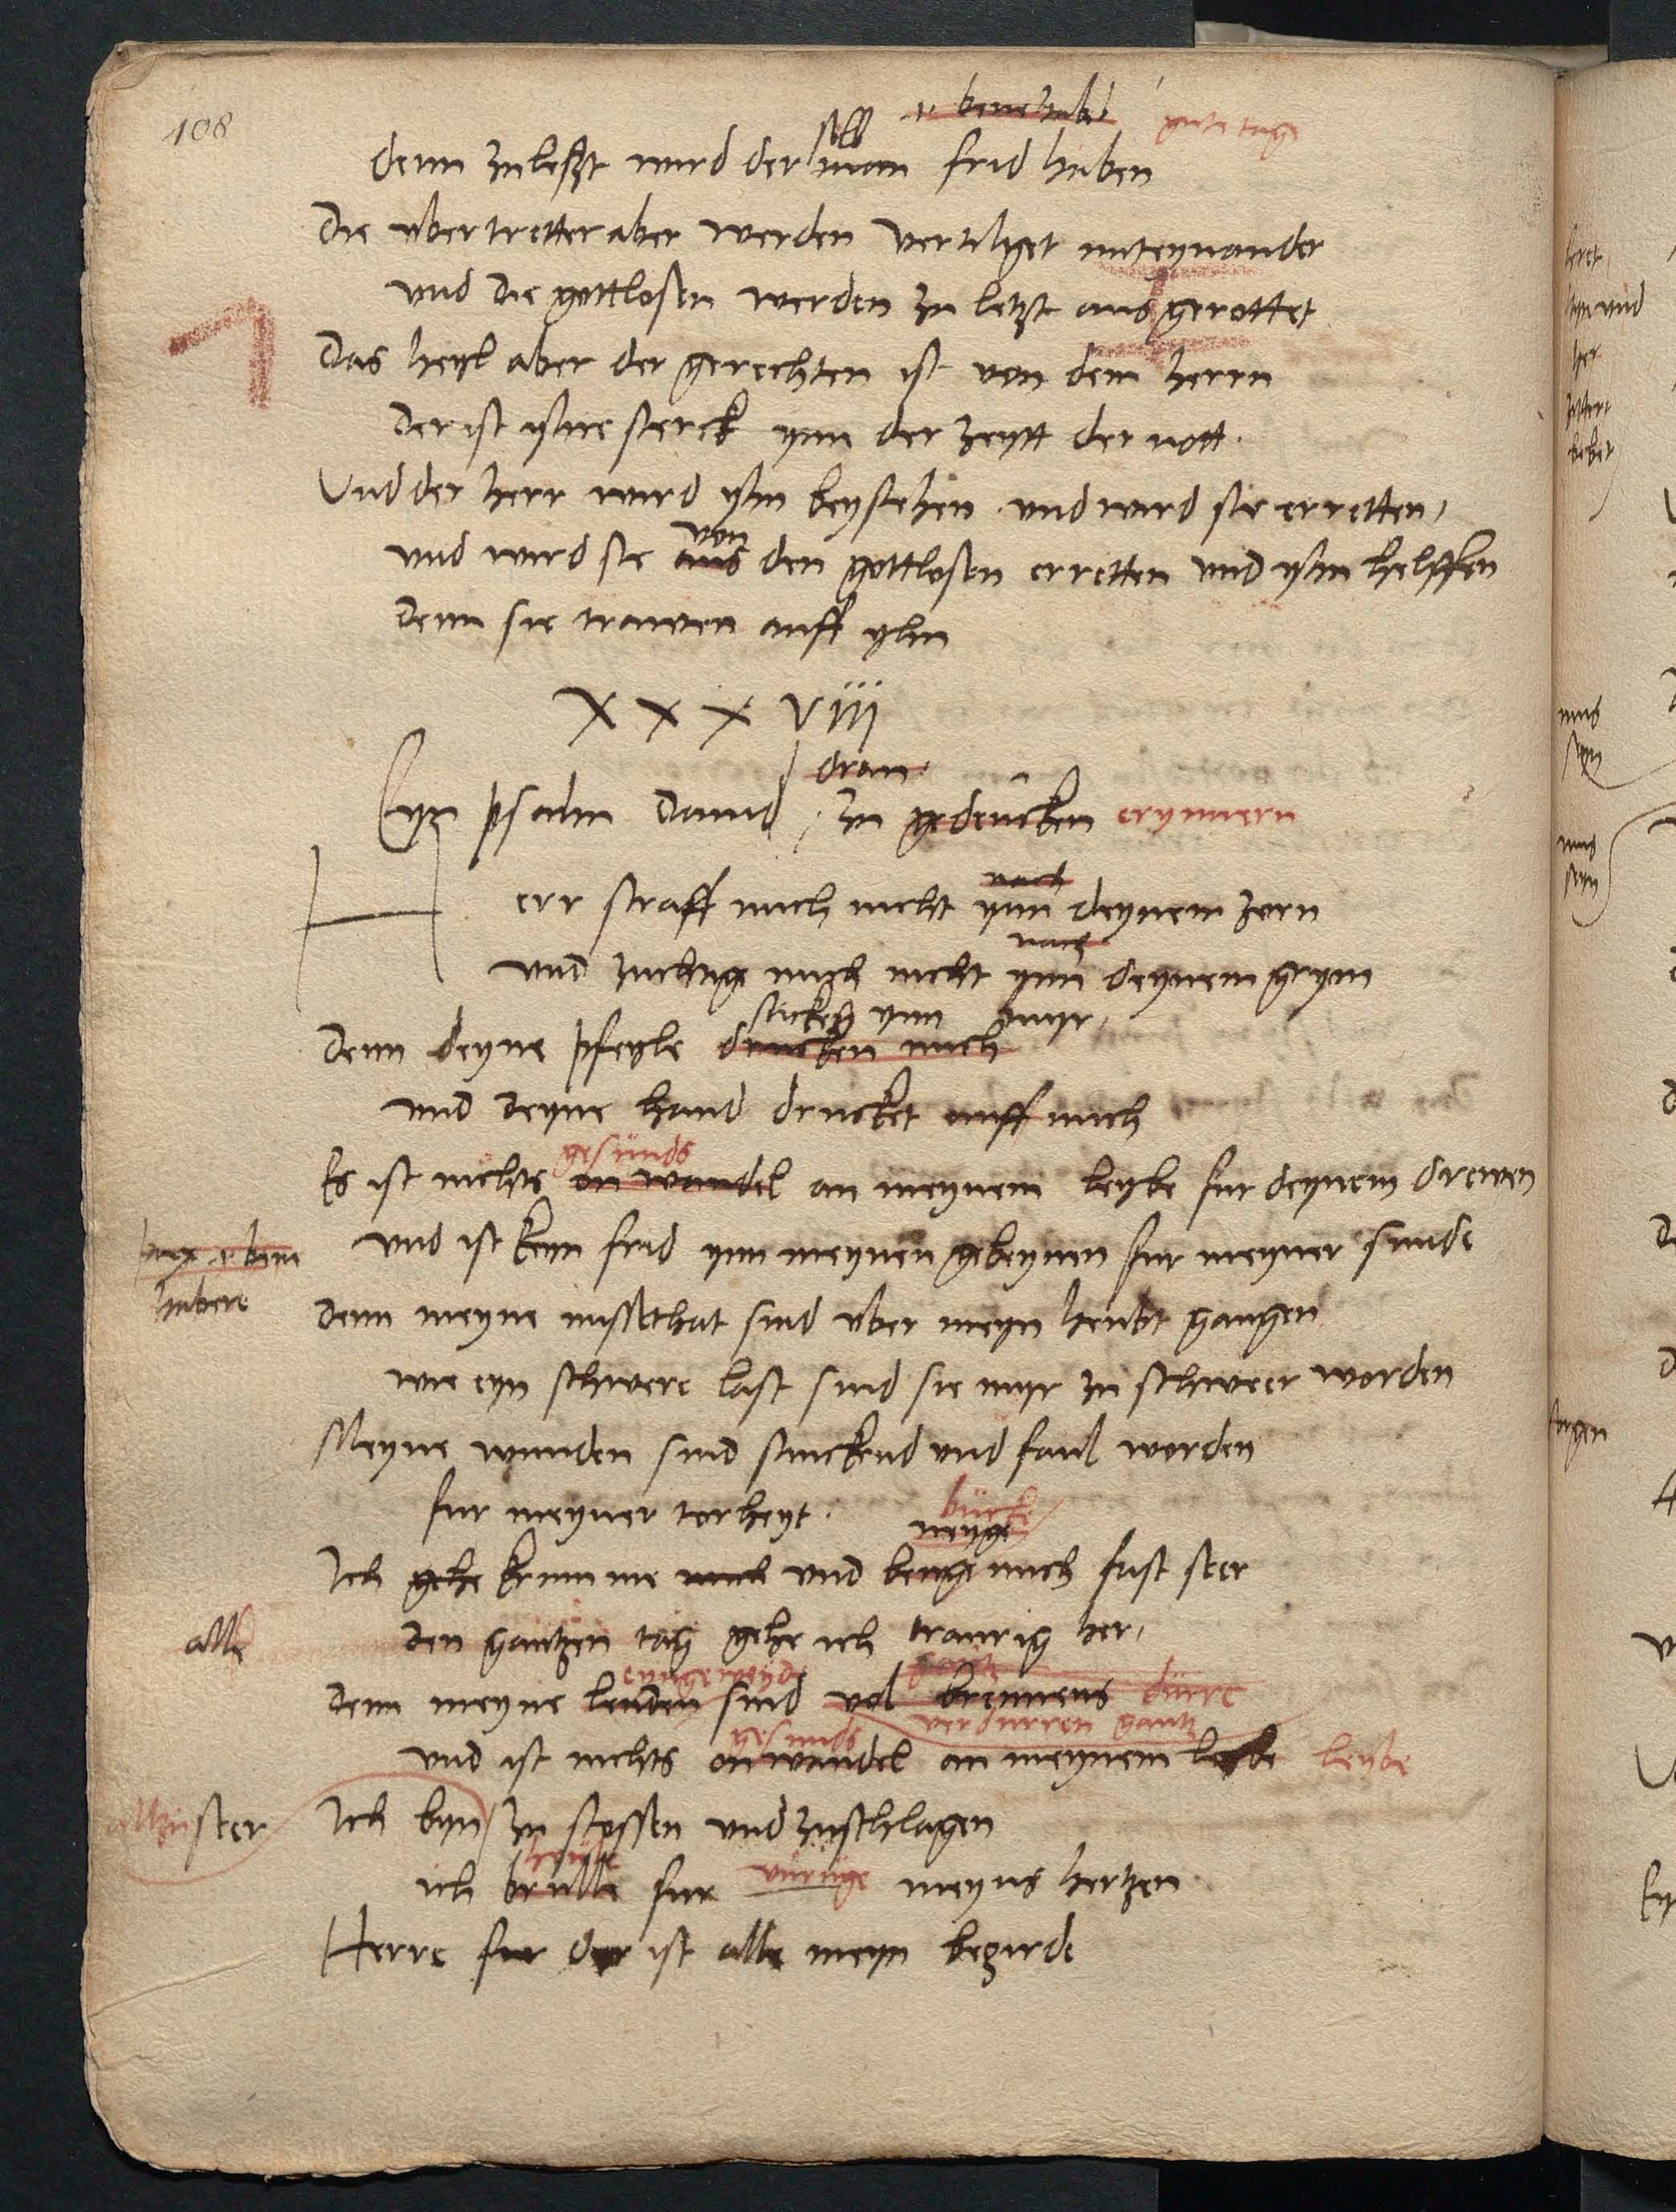 108
gute tag
denn zu letzt wird der selb man frid haben
die ubertretter aber werden vertilget miteynander
und die gottlosen werden zu letzt ausgerottet
Das heyl aber der gerechten ist von dem herrn
der ist yhre sterck ynn der zeytt der nott.
Und der herr wird yhn beystehen und wird sie erretten,
von
und wird sie aus den gottlosen erretten und yhn helffen
denn sie trawen auff yhn
XXXVIII
dran
Eyn psalm David, zu gedencken erynnern
nach
Herr straff mich nicht ynn deynem zorn
nach
und zuchtige mich nicht ynn deynem grym
stecken ynn myr,
Denn deyne pfeyle drucken mich
und deyne hand drucket auff mich
gesunds
Es ist nichts on wandel an meynem leybe fur deynem drewen
und ist keyn frid ynn meynen gebeynen fur meyner sunde
pax i. bene
habere
denn meyne missethat sind uber meyn heubt gangen
wie eyn schwere last sind sie myr zu schweer worden
Meyne wunden sind stinckend und faul worden
fur meyner torheyt.
bücke
neyge
Ich gehe krumme mich und beuge mich fast seer
alle
den gantzen tag gehe ich traurig her,
eyngeweyde
denn meyne lenden sind vol brennens dürre
gesunds verdurren gantz
und ist nichts on wandel an meynem leybe
allzu seer
Ich byn zu stossen und zuschlagen
heule
ich brulle fur unruge meyns hertzen
Herre fur dyr ist alle meyn begirde